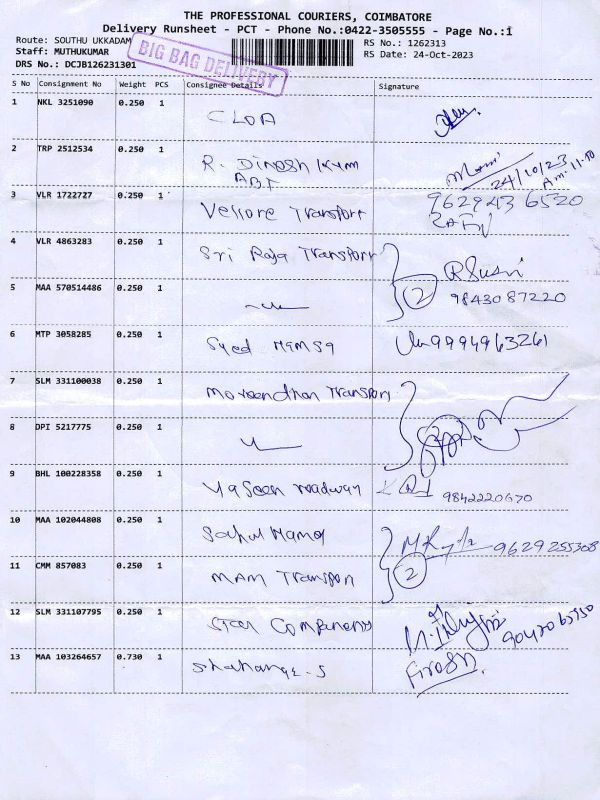 THE PROFESSIONAL COURIERS, COIMBATORE
Delivery Runsheet - PCT - Phone No.:0422-3505555 - Page No.:1
Route: SOUTHU UKKADAM
RS No.: 1262313
Staff: MUTHUKUMAR
RS Date: 24-Oct-2023
DRS No.: DCJB126231301
BIG BAG DELIVERY
S No Consignment No Weight PCS Consignee Details Signature
1 NKL 3251090 0.250 1 CLOA
2 TRP 2512534 0.250 1 R. Dinesh Kum
ABT
24/10/23
Am: 11.10
3 VLR 1722727 0.250 1 Vellore Transport 9629436520
4 VLR 4863283 0.250 1 Sri Raja Transport RSusri
5 MAA 570514486 0.250 1 2 9843087220
6 MTP 3058285 0.250 1 Syed 9994963261
7 SLM 331100038 0.250 1 Transport
8 DPI 5217775 0.250 1
9 BHL 100228358 0.250 1 Yaseen roadway 9842220670
10 MAA 102044808 0.250 1 9629255308
11 CMM 857083 0.250 1 MAM Transport 2
12 SLM 331107795 0.250 1 Star
13 MAA 103264657 0.730 1